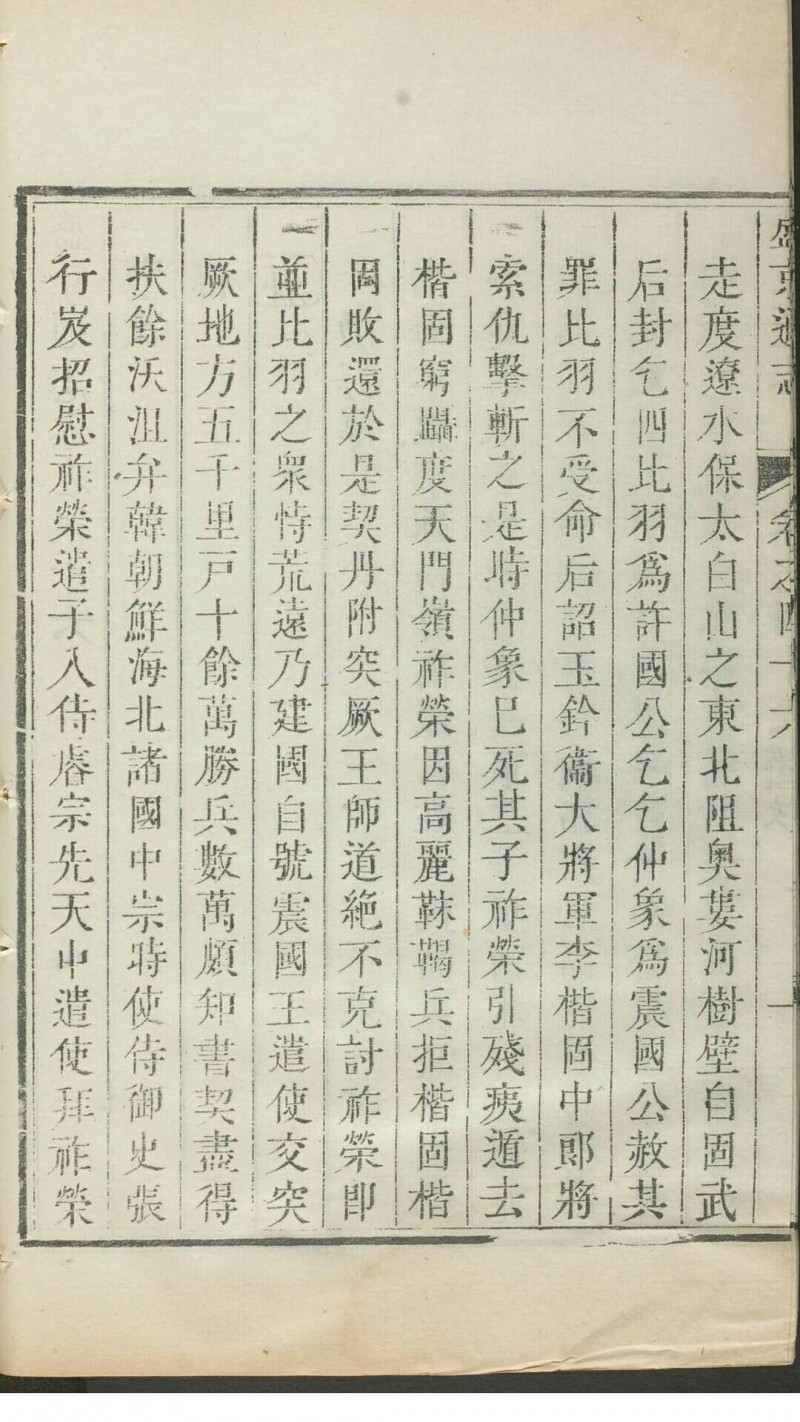 盛京通志 卷之四十六 一
走度遼水保太白山之東北阻奥婁河樹壁自固武
后封乞四比羽爲許國公乞乞仲象爲震國公赦其
罪比羽不受命后詔玉鈐衞大將軍李楷固中郎將
索仇擊斬之是時仲象已死其子祚榮引殘痍遁去
楷固窮躡度天門嶺祚榮因高麗靺鞨兵拒楷固楷
固敗還於是契丹附突厥王師道絶不克討祚榮卽
並比羽之衆恃荒遠乃建國自號震國王遣使交突
厥地方五千里戸十餘萬勝兵數萬頗知書契盡得
扶餘沃沮弁韓朝鮮海北諸國中宗時使侍御史張
行岌招慰祚榮遣子入侍睿宗先天中遣使拜祚榮